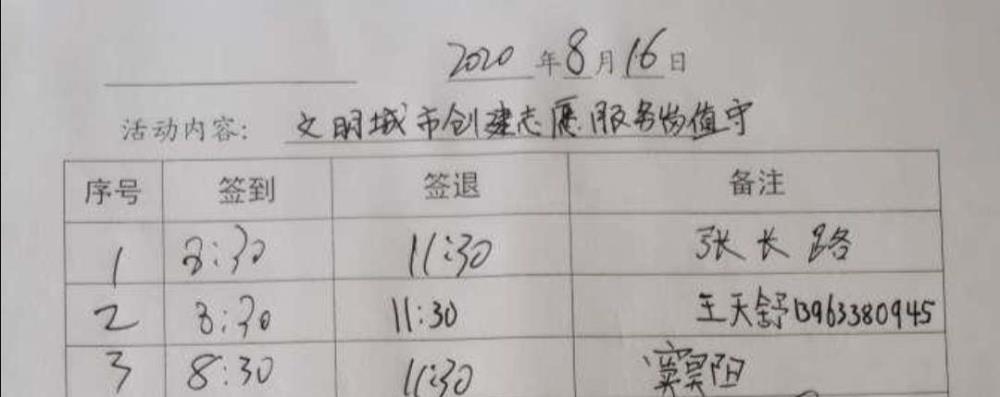 2020年8月16日
活动内容: 文明城市创建志愿服务岗值守
序号 签到 签退 备注
1 8:30 11:30 张长路
2 8:30 11:30 王天舒13963380945
3 8:30 11:30 窦昊阳